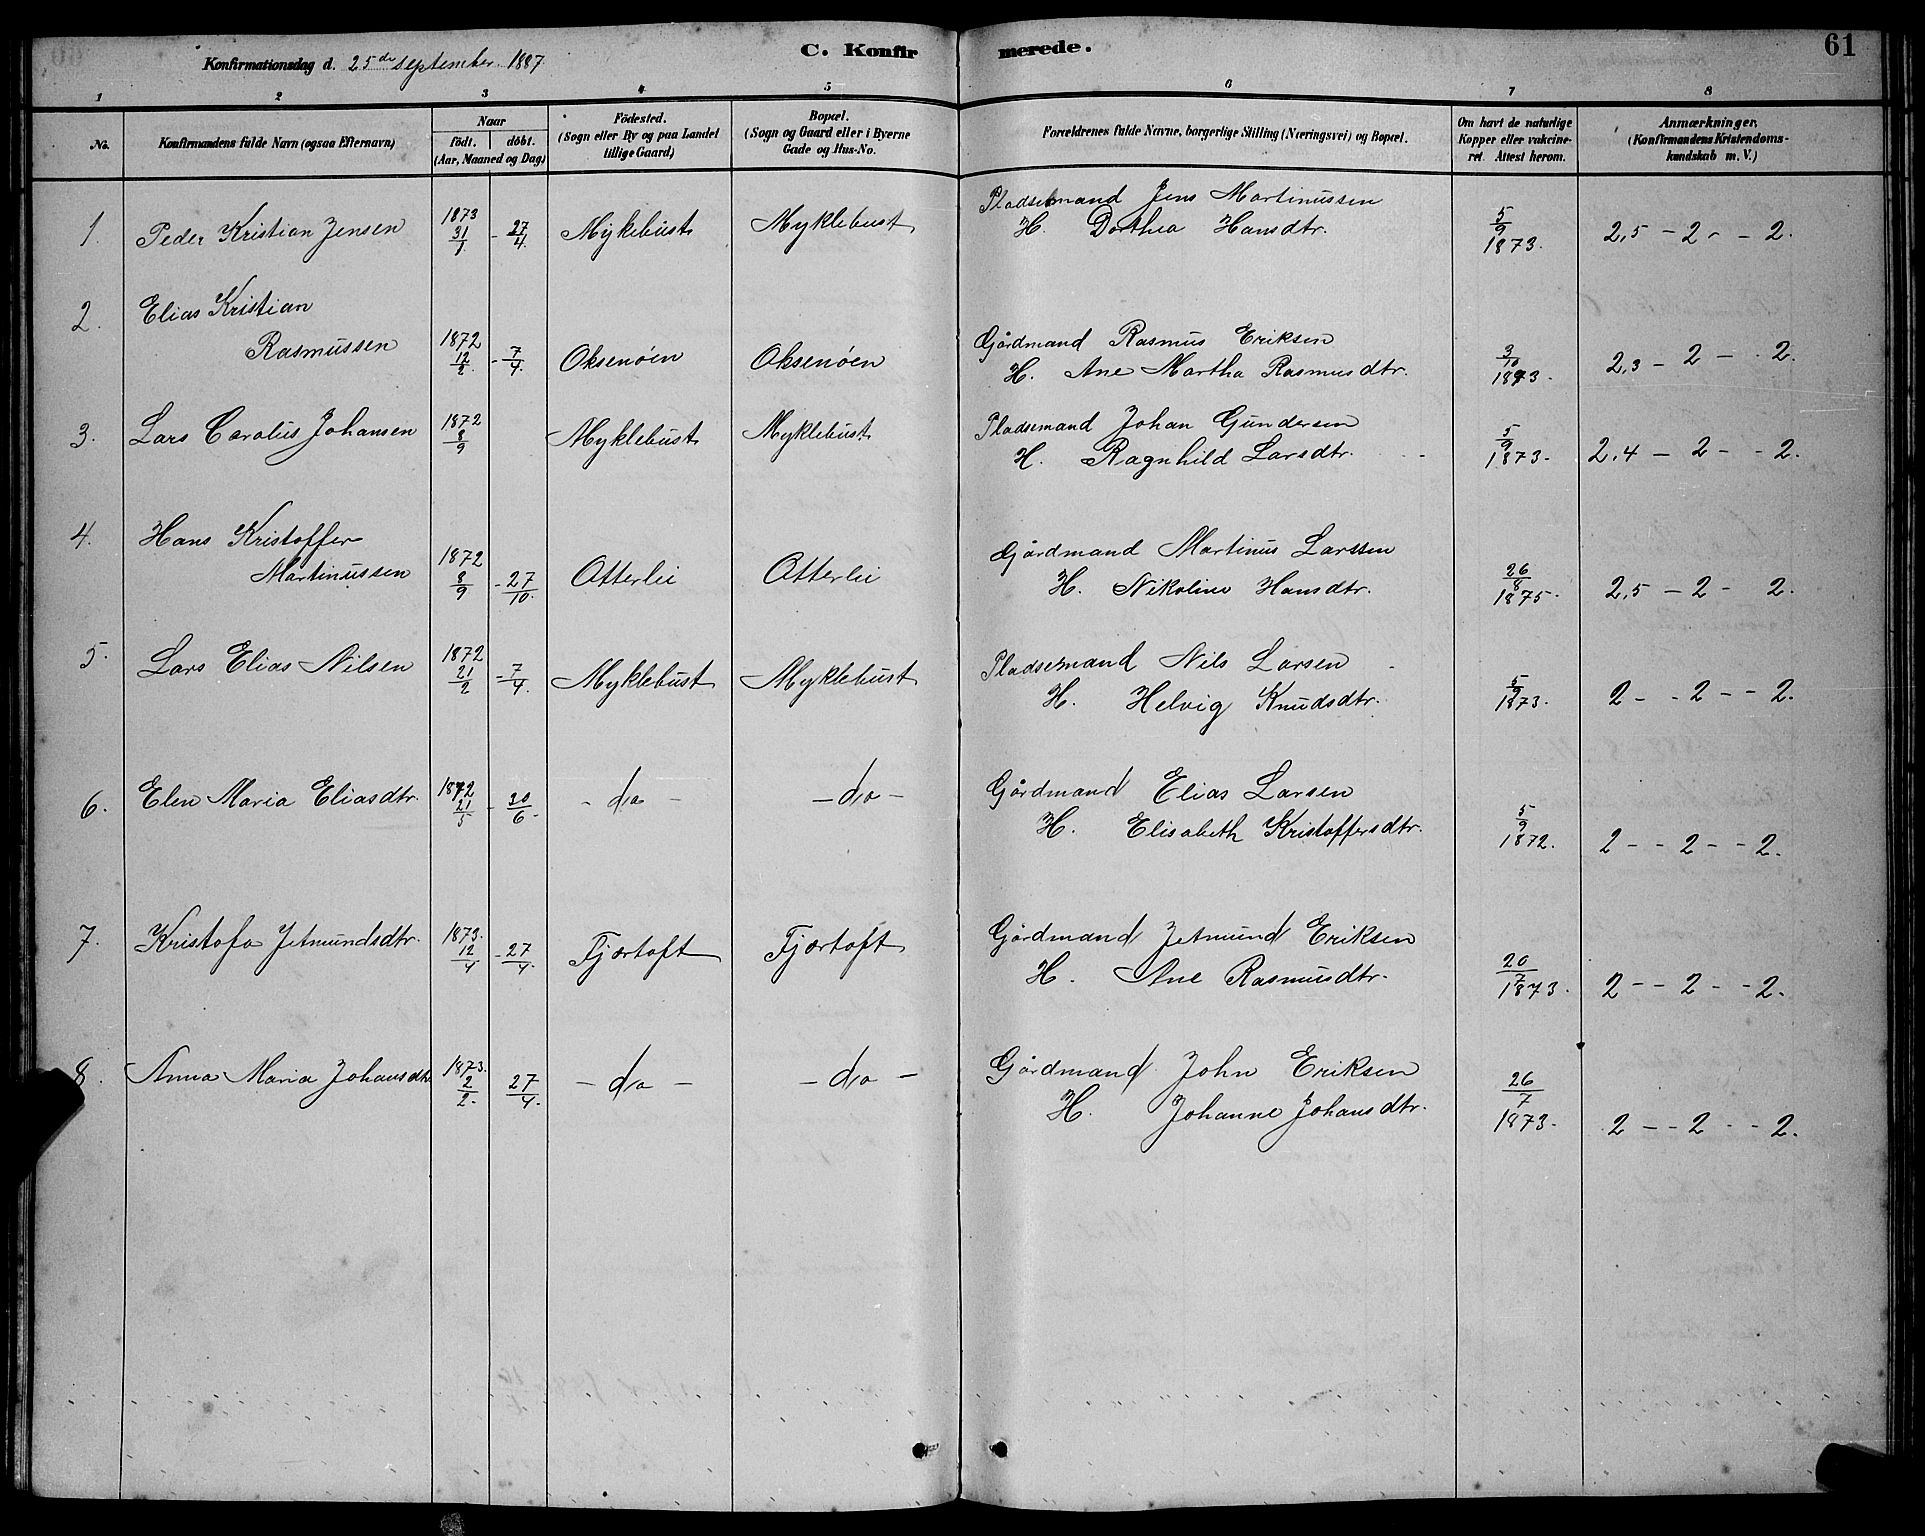 61
C. Konfirmerede.
Konfirmationsdag d. 25de september 1887
1 2 3 4 5 6 7 8
No.
Konfirmandens fulde Navn (ogsaa Efternavn)
Naar
født. døbt.
(Aar, Maaned og Dag)
Fødested.
(Sogn eller By og paa Landet
tillige Gaard)
Bopæl.
(Sogn og Gaard eller i Byerne
Gade og Hus-No.
Forældrenes fulde Navne, borgerlige Stilling (Næringsvei) og Bopæl.
Om havt de naturlige
Kopper eller vakcine-
ret. Attest herom.
Anmærkninger,
(Konfirmandens Kristendoms-
kundskab m. V.)
1. Peder Kristian Jensen 1873 31/1 - 27/4 Myklebust Myklebust
Pladsemand Jens Martinussen
H. Dorthea Hansdtr. 5/9 1873. 2,5 - 2 - - 2.
2. Elias Kristian
Rasmussen 1872 12/2 - 7/4 Oksenøen Oksenøen
Gårdmand Rasmus Eriksen
H. Ane Martha Rasmusdtr. 3/10 1873. 2,3 - 2 - - 2.
3. Lars Carolus Johansen 1872 8/9 Myklebust Myklebust
Pladsemand Johan Gundersen
H. Ragnhild Larsdtr. 5/9 1873. 2,4 - 2 - - 2.
4. Hans Kristoffer
Martinussen 1872 8/9 - 27/10. Otterlei Otterlei
Gårdmand Martinus Larssen
H. Nikoline Hansdtr. 26/8 1875. 2,5 - 2 - 2.
5. Lars Elias Nilsen 1872 21/2 - 7/4. Myklebust Myklebust
Pladsemand Nils Larsen
H. Helvig Knudsdtr. 5/9 1873. 2 - - 2 - - 2.
6. Elen Maria Eliasdtr. 1872 21/5 - 30/6. - do - - do -
Gårdmand Elias Larsen
H. Elisabeth Kristoffersdtr. 5/9 1872. 2 - - 2 - - 2.
7. Kristofa Jetmundsdtr. 1873. 12/4 - 27/4. Fjørtoft Fjørtoft
Gårdmand Jetmund Eriksen
H. Ane Rasmusdtr. 20/7 1873. 2 - - 2 - - 2.
8. Anna Maria Johansdtr 1873. 2/2. 27/4. - do - - do -
Gårdmand John Eriksen
H. Johanne Johansdtr. 26/7 1873. 2 - - 2 - - 2.